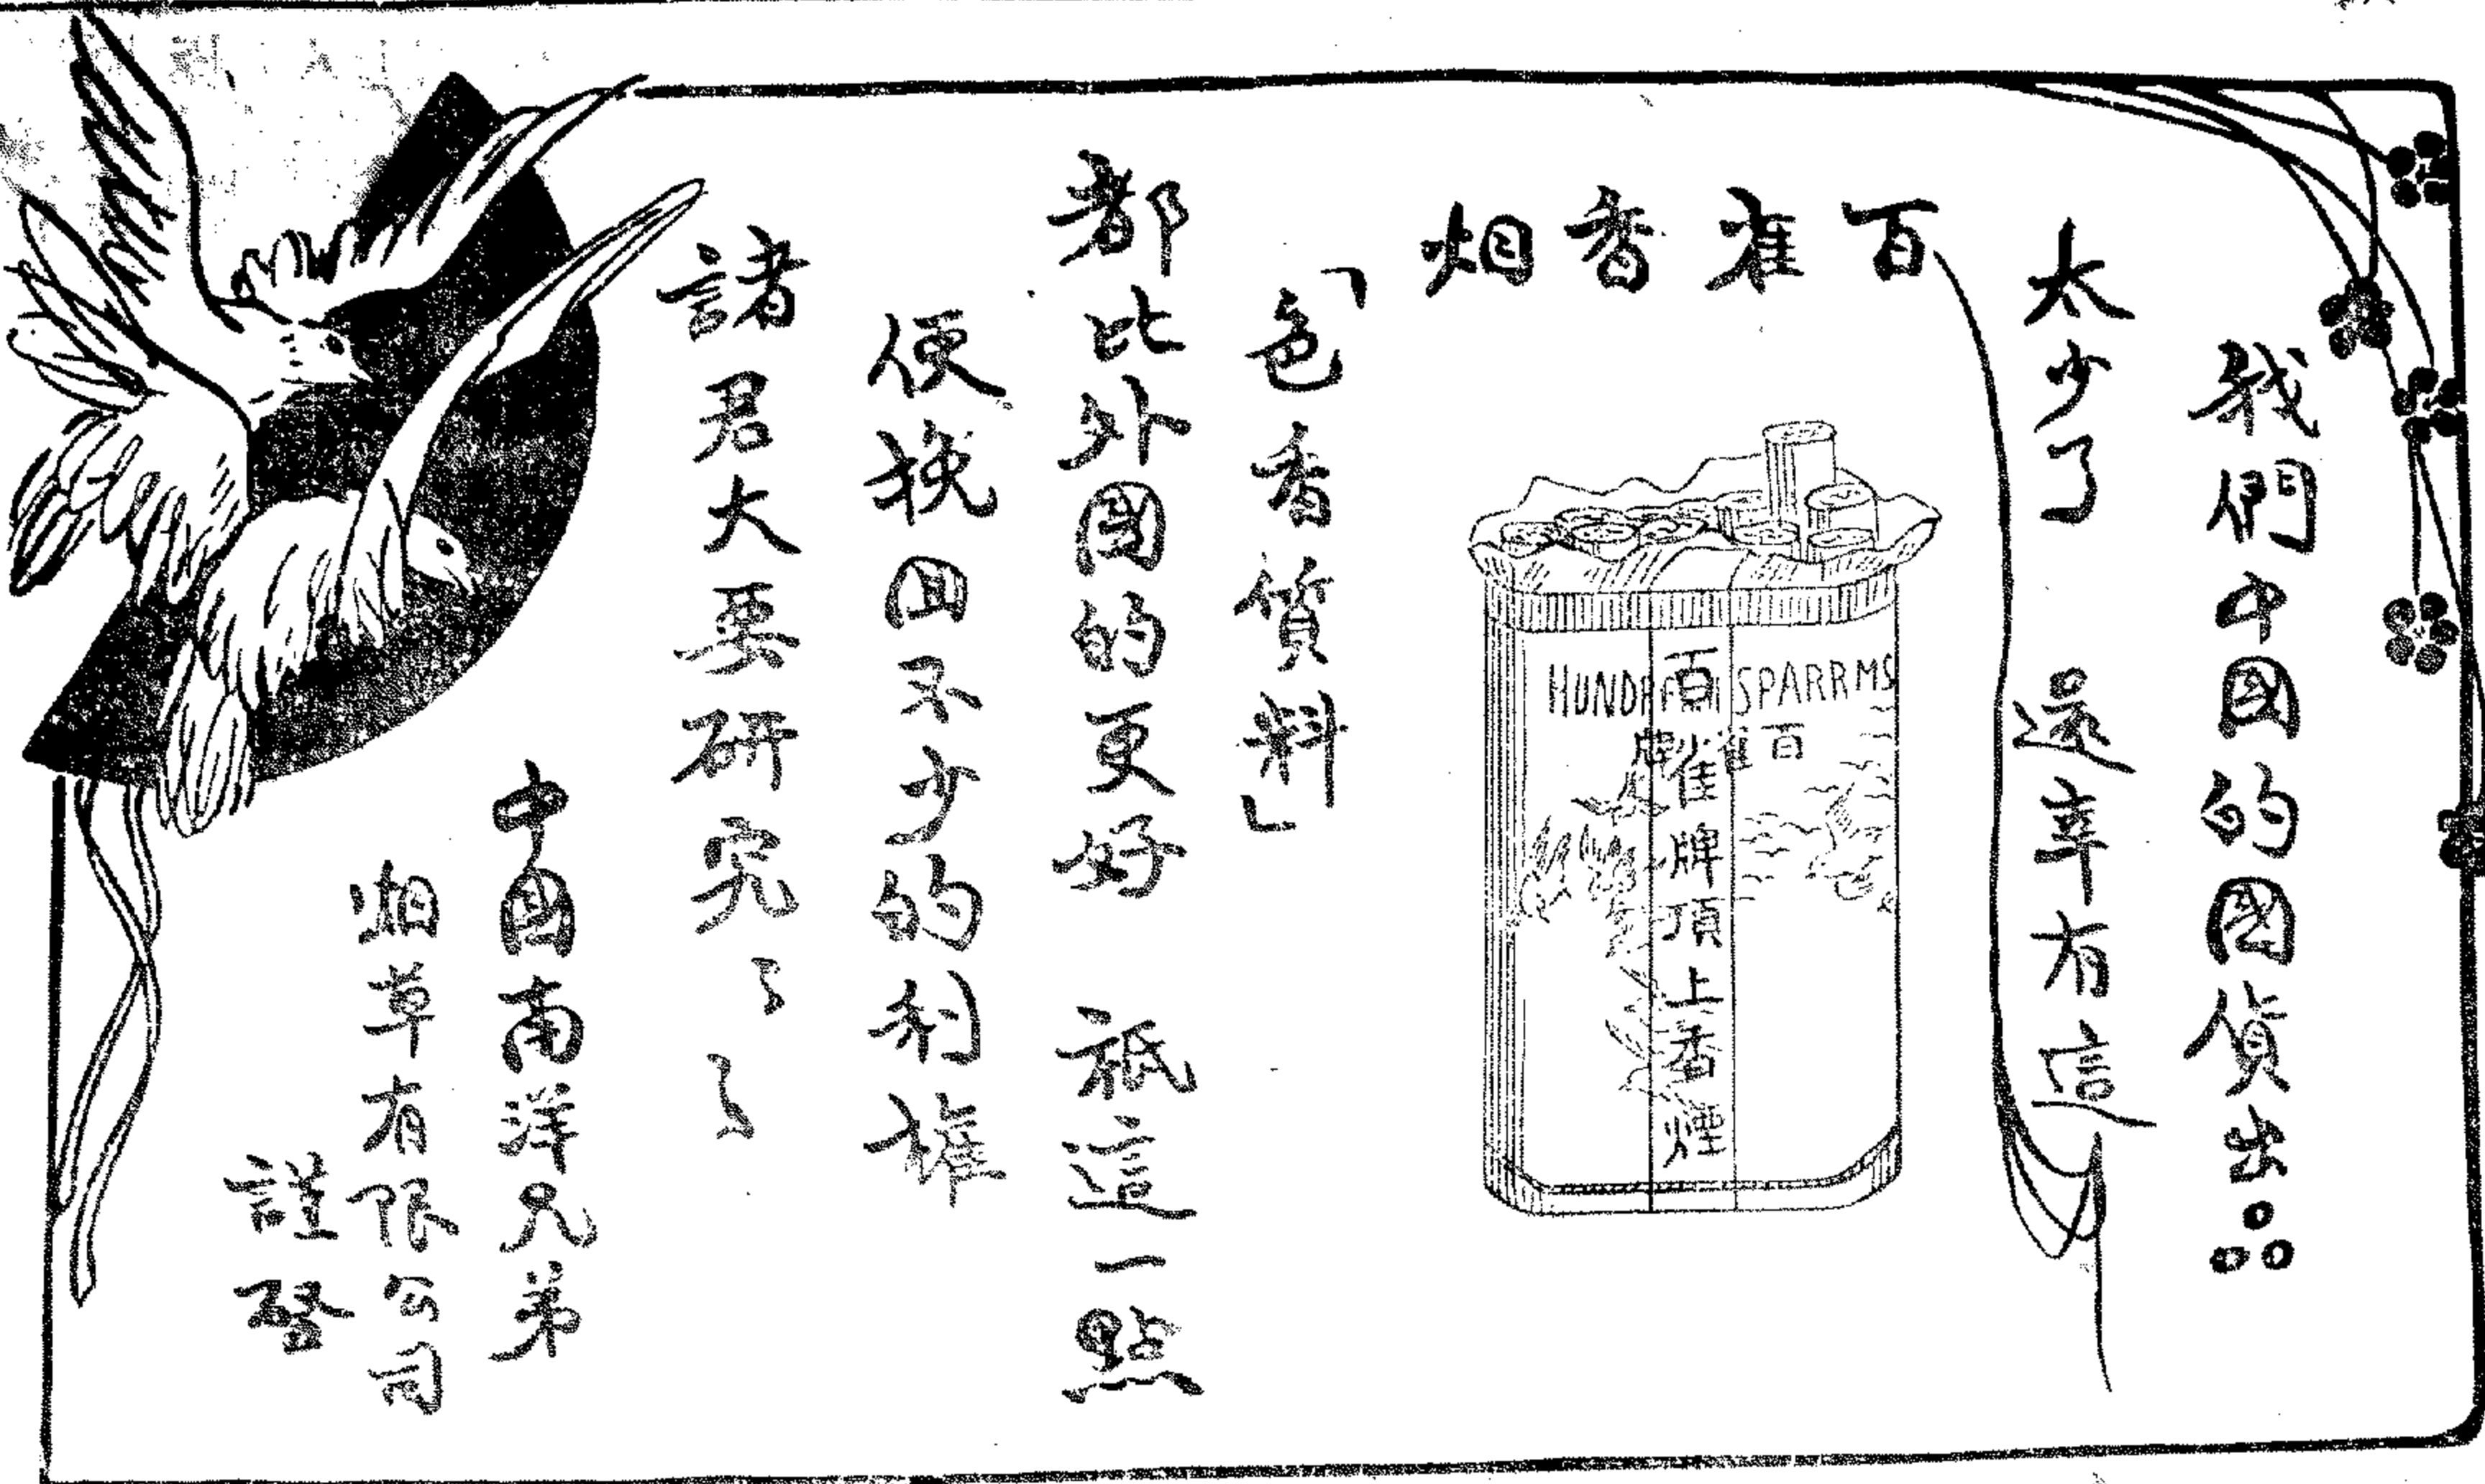 我們中國的國貨出品
太少了 還幸有這
百雀香烟
HUNDRED SPARRMS
百雀牌
百雀牌頂上香煙
「色香質料」
都比外國的更好 祇這一點
便挽回不少的利權
諸君大要研究了了
中國南洋兄弟
烟草有限公司
謹啓